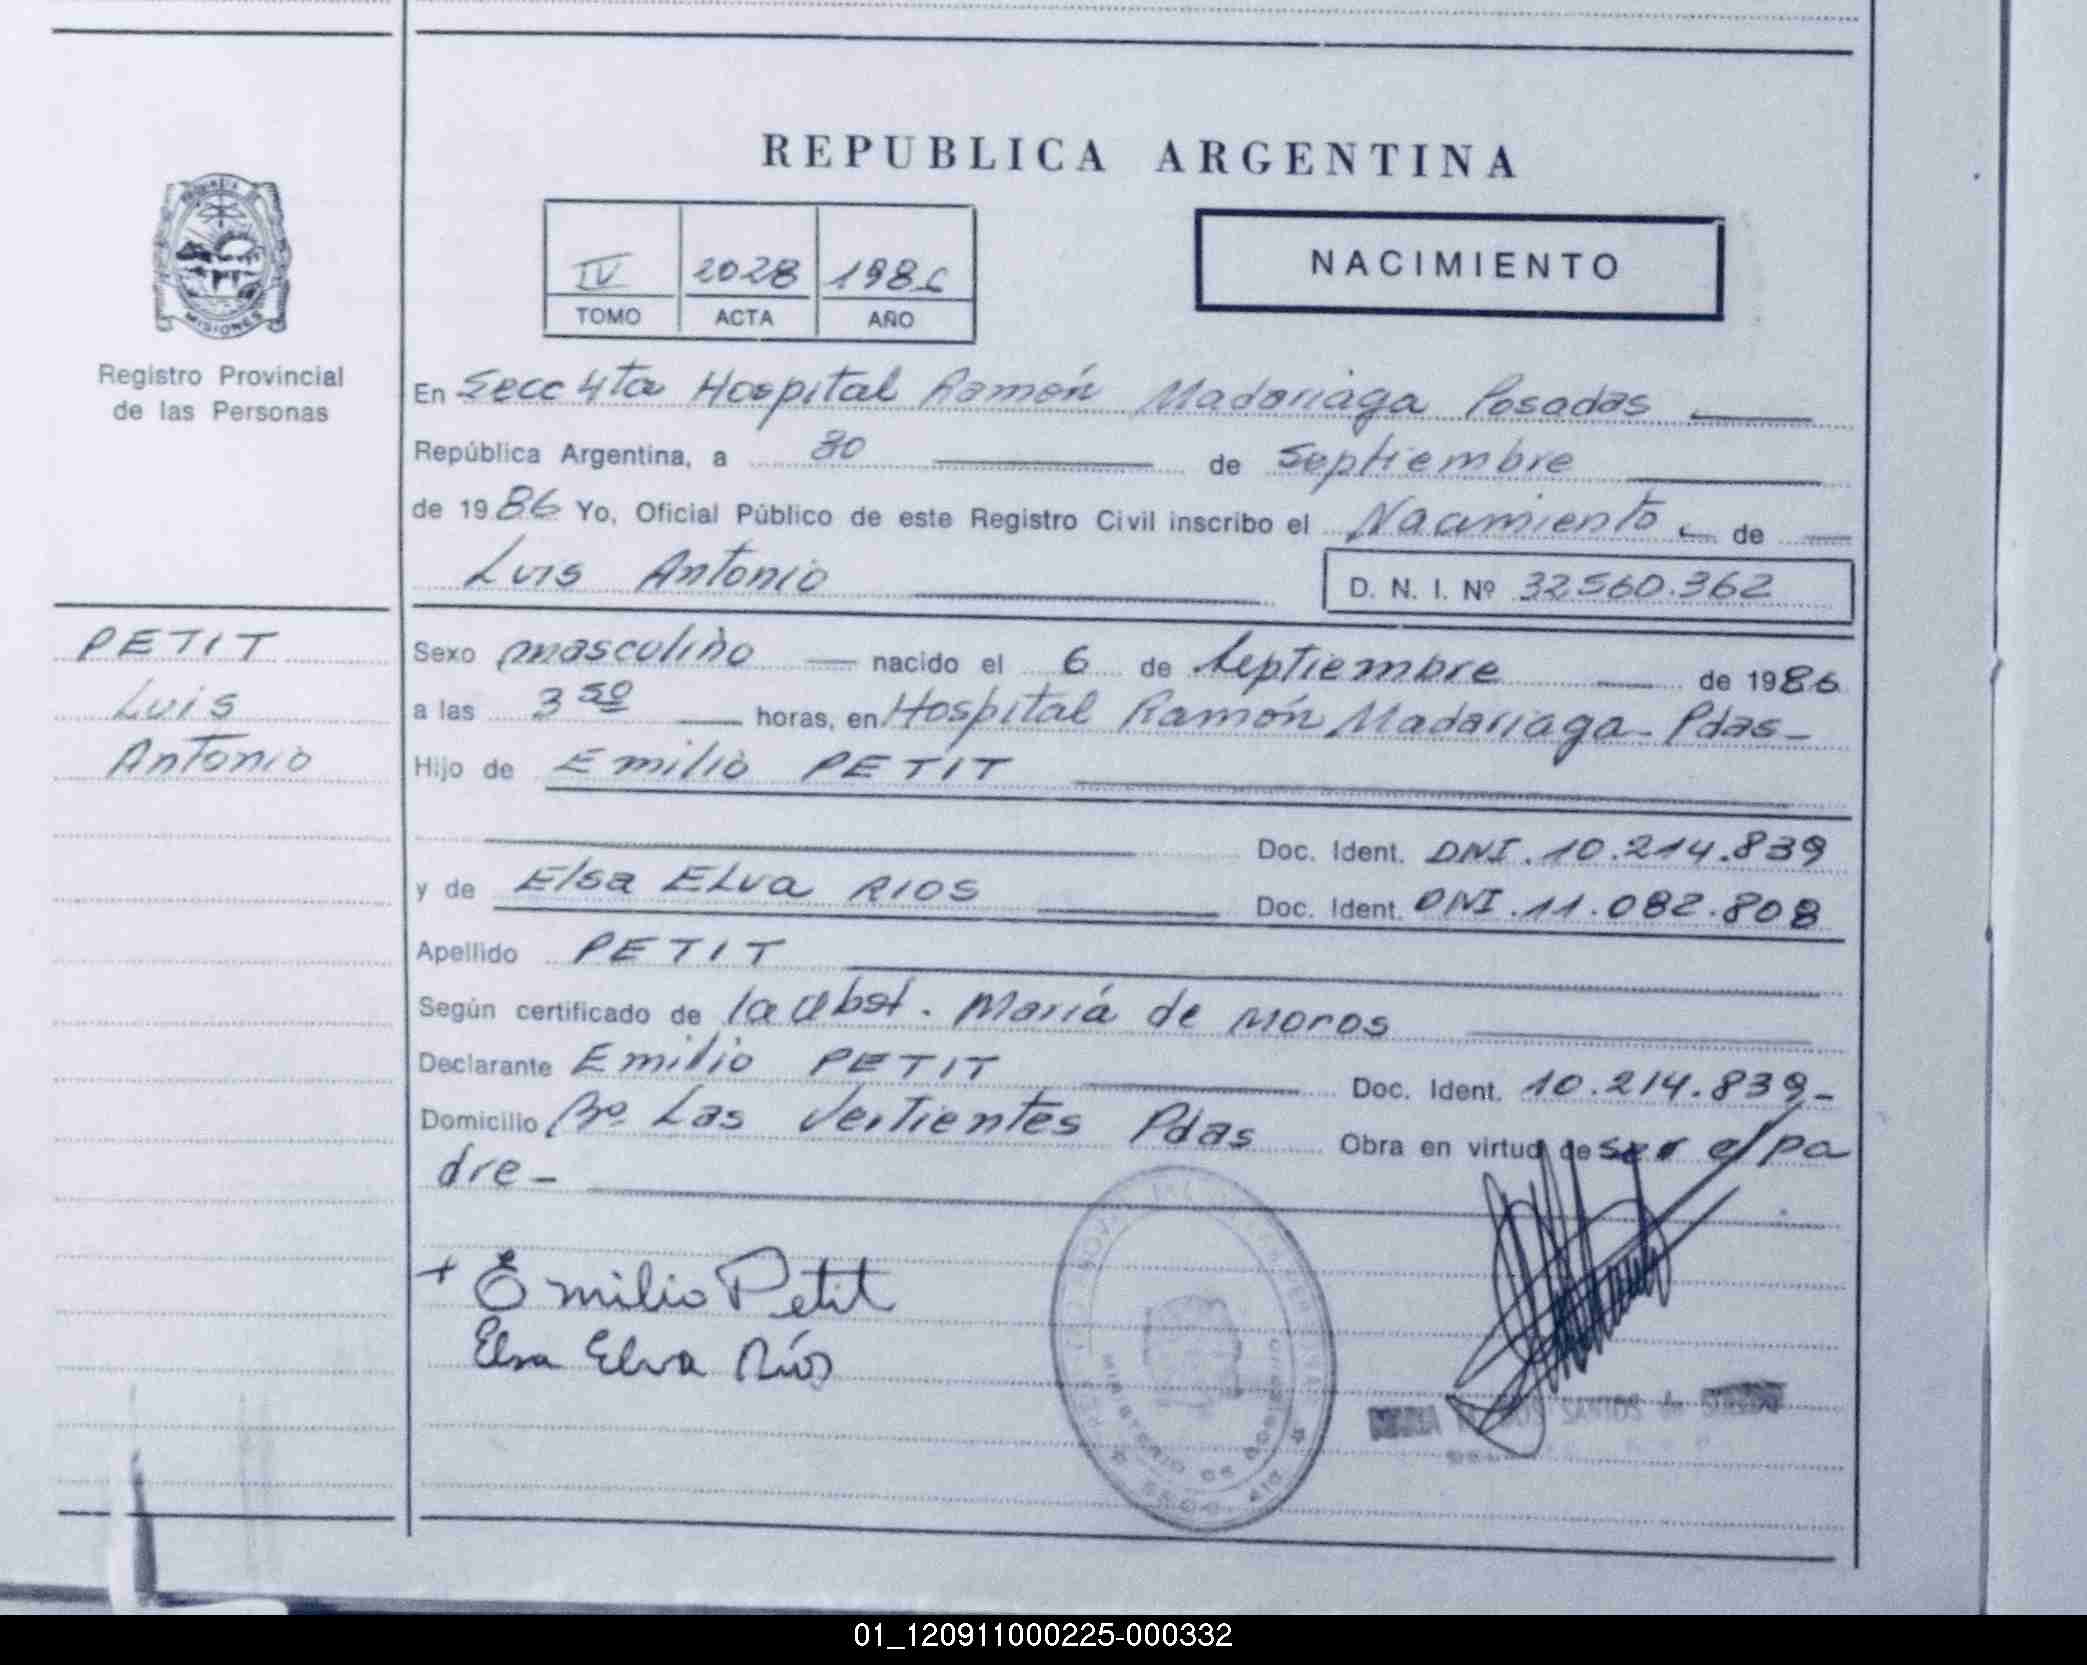 REPUBLICA ARGENTINA
PROVINCIA DE
MISIONES
Registro Provincial
de las Personas
IV 2028 1986
TOMO ACTA AÑO
NACIMIENTO
En Secc 4ta Hospital Ramón Madariaga Posadas
República Argentina, a 30 de Septiembre
de 1986 Yo, Oficial Público de este Registro Civil inscribo el Nacimiento de
Luis Antonio D. N. I. Nº 32560.362
PETIT
Luis
Antonio
Sexo masculino nacido el 6 de Septiembre de 1986
a las 3 50 horas, en Hospital Ramón Madariaga - Pdas -
Hijo de Emilio PETIT
Doc. Ident. DNI. 10.214.839
y de Elsa ELva RIOS Doc. Ident. DNI. 11.082.808
Apellido PETIT
Según certificado de la obst. María de Moros
Declarante Emilio PETIT Doc. Ident. 10.214.839-
Domicilio Bº Las Vertientes Pdas Obra en virtud de ser el pa
dre -
+ Emilio Petit
Elsa Elva Ríos
MINISTERIO DE GOBIERNO
01_120911000225-000332